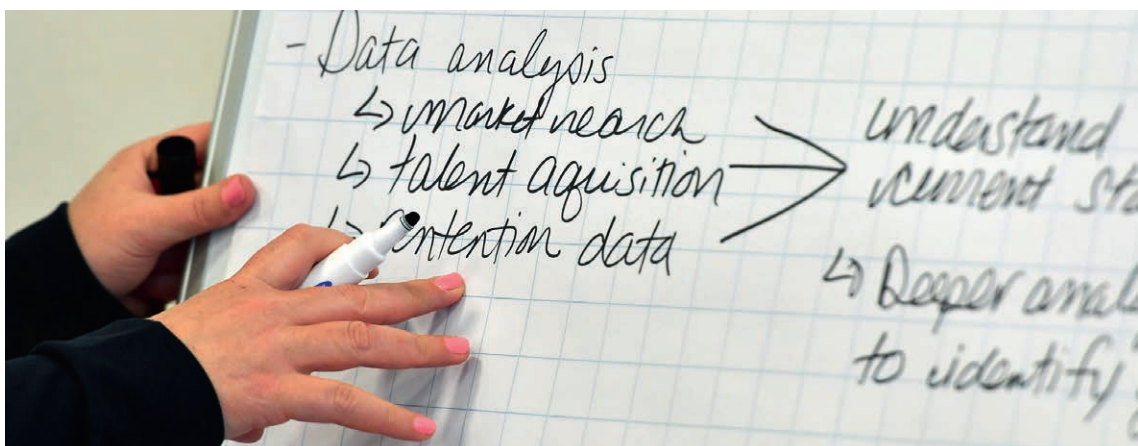 - Data analysis
↳ market research
↳ talent aquisition
↳ retention data
understand
current
↳ Deeper
to identify